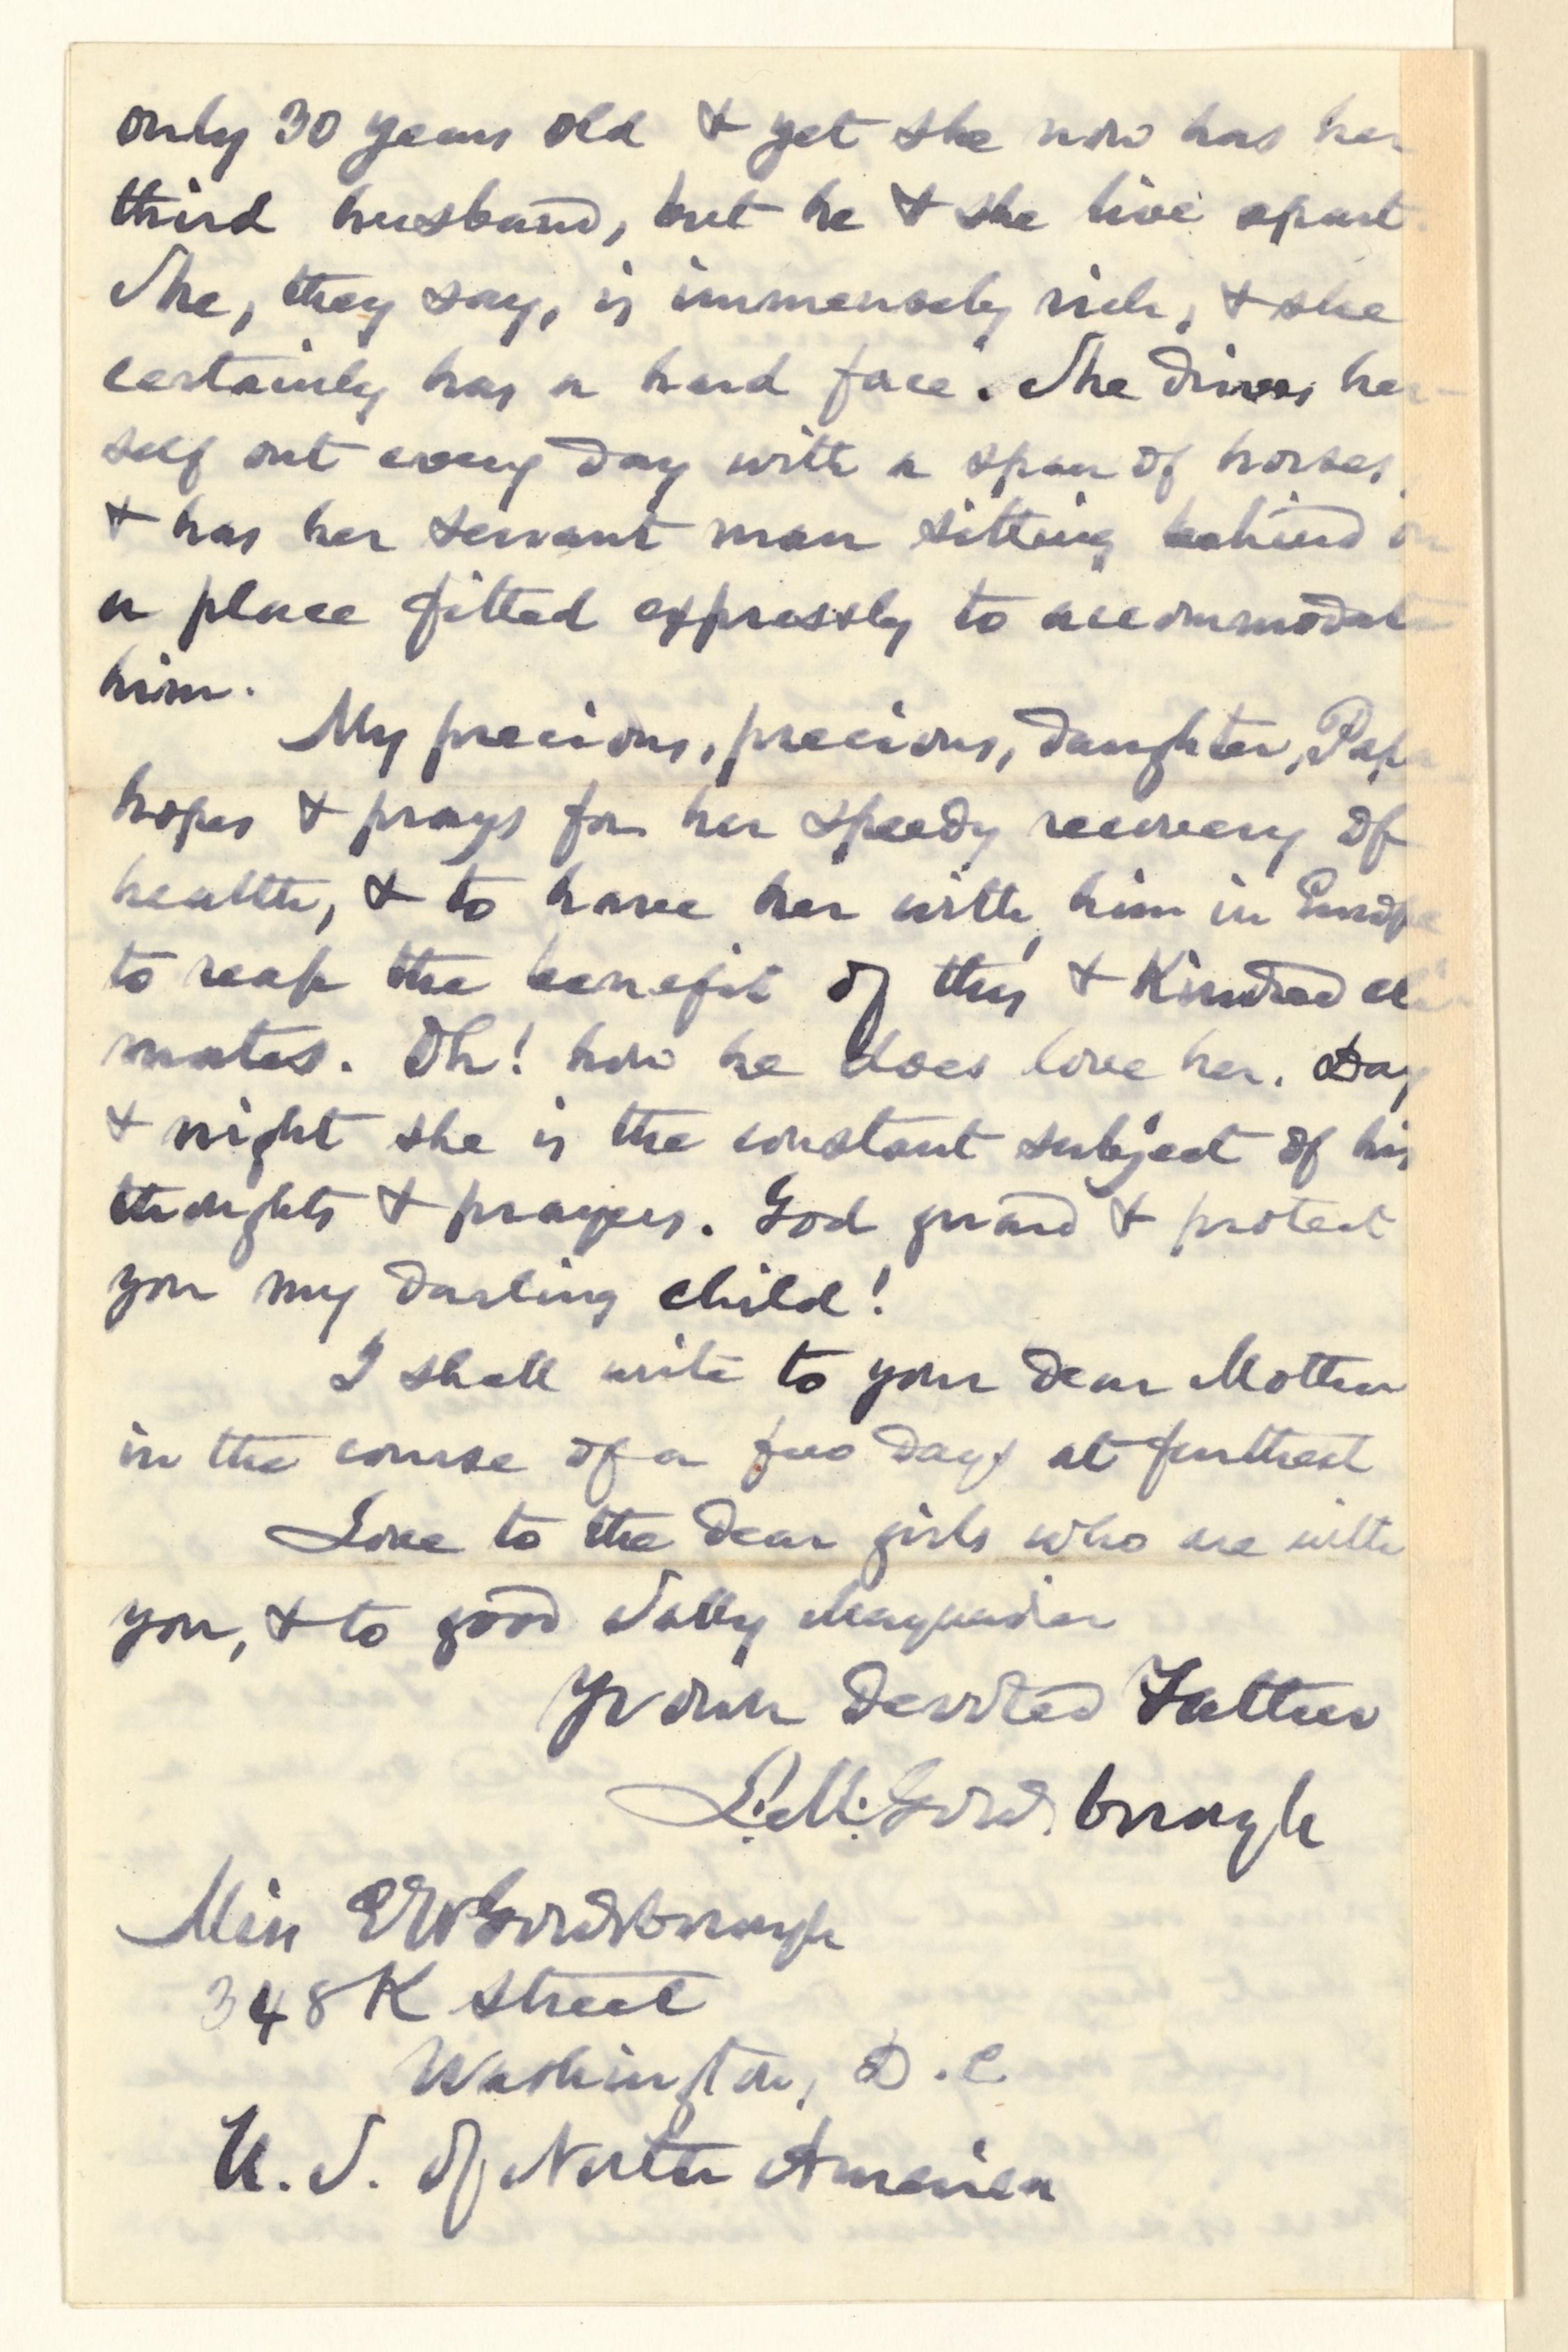 only 30 years old & yet she now has her
third husband, but he & she live apart.
She, they say, is immensely rich, & she
certainly has a hard face. She drives her-
self out every day with a span of horses,
& has her servant man sitting behind on
a place fitted expressly to accommodate
him.
My precious, precious, daughter, Papa
hopes & prays for her speedy recovery of
health, & to have her with him in Europe
to reap the benefit of this & Kindred cli-
mates. Oh! how he does love her. Day
& night she is the constant subject of his
thoughts & prayers. God guard & protect
you my darling child!
I shall write to your dear Mother
in the course of a few days at furthest
Love to the dear girls who are with
you, & to good Sally
Yr own devoted Father
L. M. Goldsborough
Miss E W Goldsborough
348 K Street
Washington, D. C
U. S. of North America